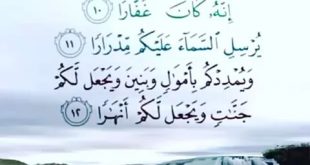 إِنَّهُۥ كَانَ غَفَّارًا ١٠
يُرْسِلِ ٱلسَّمَآءَ عَلَيْكُم مِّدْرَارًا ١١
وَيُمْدِدْكُم بِأَمْوَٰلٍ وَبَنِينَ وَيَجْعَل لَّكُمْ
جَنَّٰتٍ وَيَجْعَل لَّكُمْ أَنْهَٰرًا ١٢